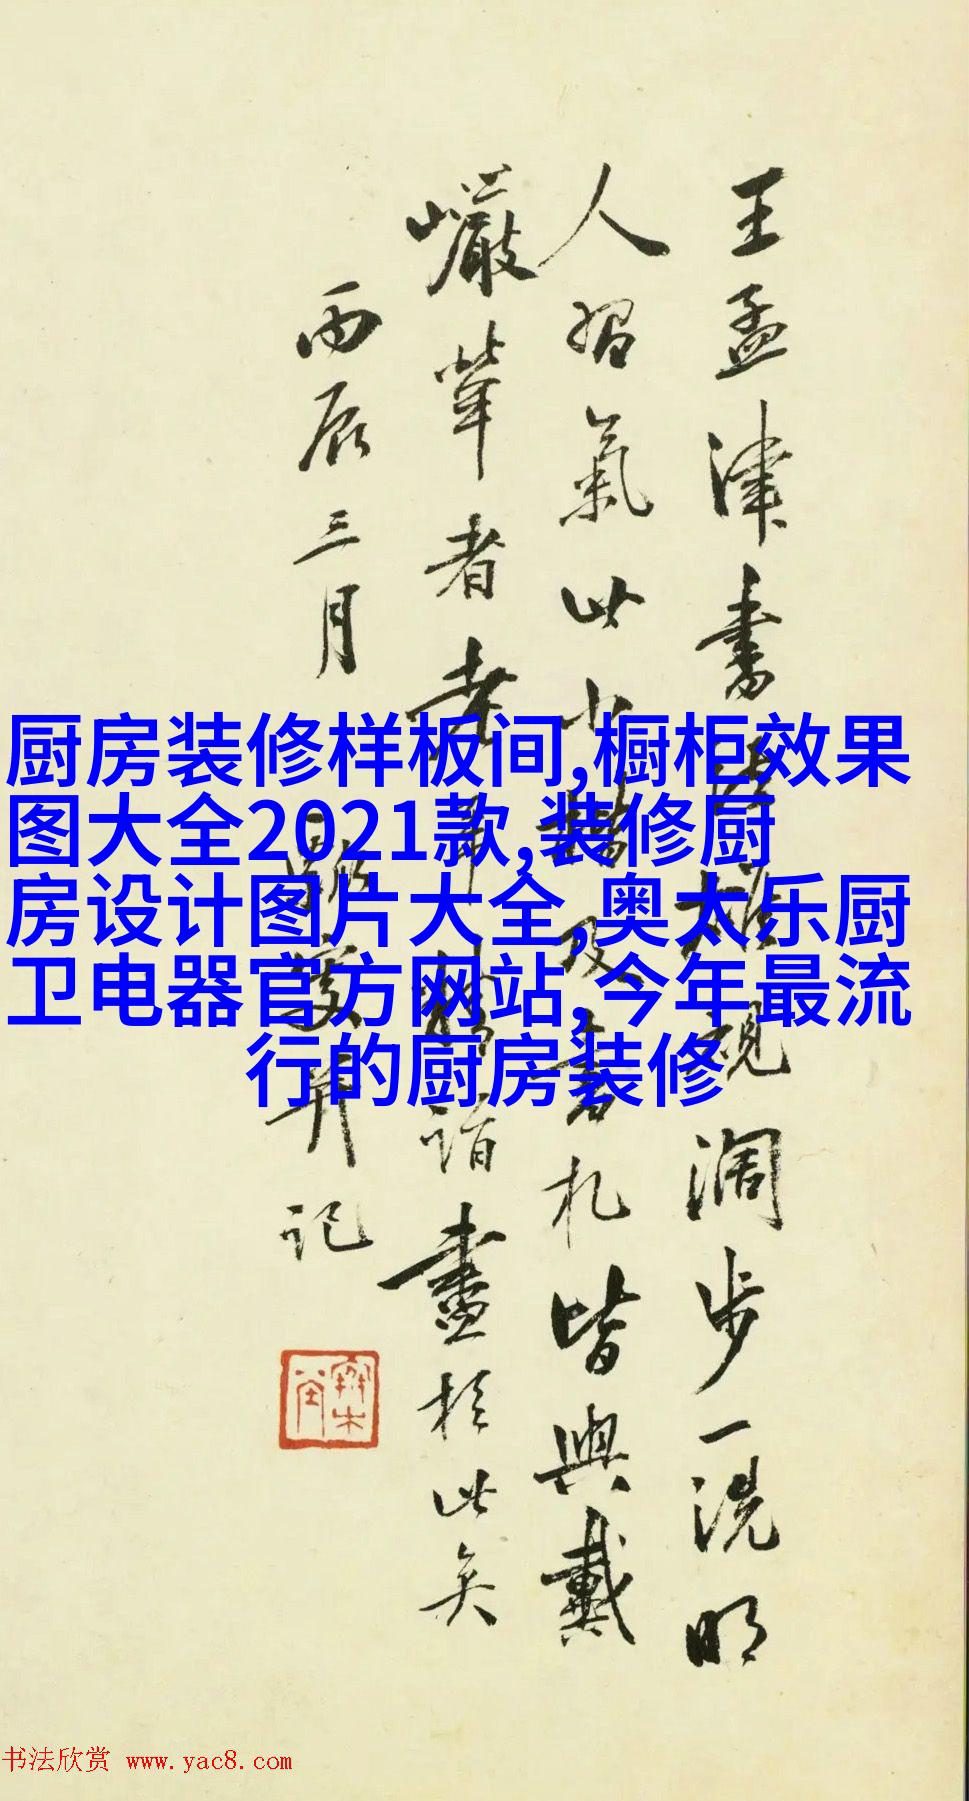 王孟津書法雄視闊步一洗明
人習氣此小楷及書札皆與戴
巖犖者老筆精詣盡於此矣
丙辰三月
并記
厨房装修样板间,橱柜效果
图大全2021款,装修厨
房设计图片大全,奥太乐厨
卫电器官方网站,今年最流
行的厨房装修
书法欣赏 www.yac8.com